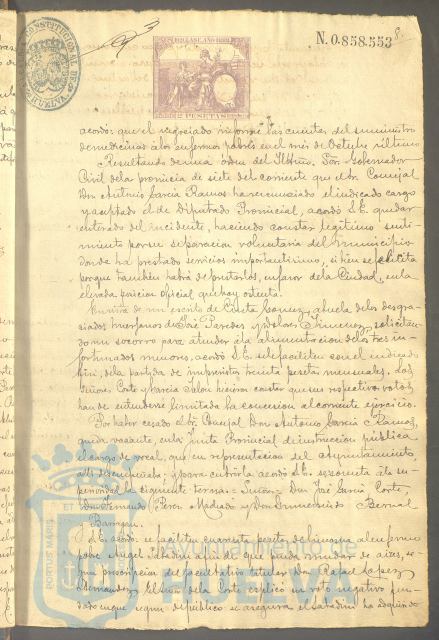 N. 0.858.553
2 PESETAS
acordó que el negociado informe las cuentas del suministro
de medicinas a los enfermos pobres en el mes de Octubre último
Resultando de una orden del Iltmo. Sor. Gobernador
Civil de la provincia de siete del corriente que el Sr. Concejal
Don Antonio García Ramos ha renunciado el indicado cargo
y aceptado el de Diputado Provincial, acordó S.E. quedar
enterado del incidente, haciendo constar legítimo senti-
miento por su separacion voluntaria del municipio
donde ha prestado servicios importantísimos, si bien se felicita
porque tambien habrá de prestarlos, en favor de la Ciudad, en la
elevada posicion oficial que hoy ostenta.
En vista de un escrito de Gomez, abuela de los desgra-
ciados huerfanos de José Paredes y Jimenez, solicitan-
do un socorro para atender á la alimentacion de los tres in-
fortunados menores, acordó S.E. se le faciliten con el indicado
fin, de la partida de imprevistos treinta pesetas mensuales. Los
Señores Corte y Garcia hicieron constar que sus respectivos votos
han de entenderse limitada la concesion al corriente ejercicio.
Por haber cesado el Sr. Concejal Don Antonio García Ramos,
queda vacante, en la Junta Provincial de instruccion pública
el cargo de vocal, que en representacion del Ayuntamiento,
allí desempeñaba; y para cubrirla acordó S.E. se someta á la su-
perioridad la siguiente terna: Señores Don José García Corte,
Don Fernando Perez Machado y Don Bernal
Barroso.
S.E. acordó se faciliten cuarenta pesetas de limosna al enfermo
pobre Angel Saladini á fin de que pueda mudar de aires, se-
gun prescripcion del facultativo titular Don Rafael Lopez
Hernandez. El Señor de la Corte explicó su voto negativo fun-
dado en que segun del público se asegura el Saladini ha adquirido
PORTUS MARIS
HUELVA